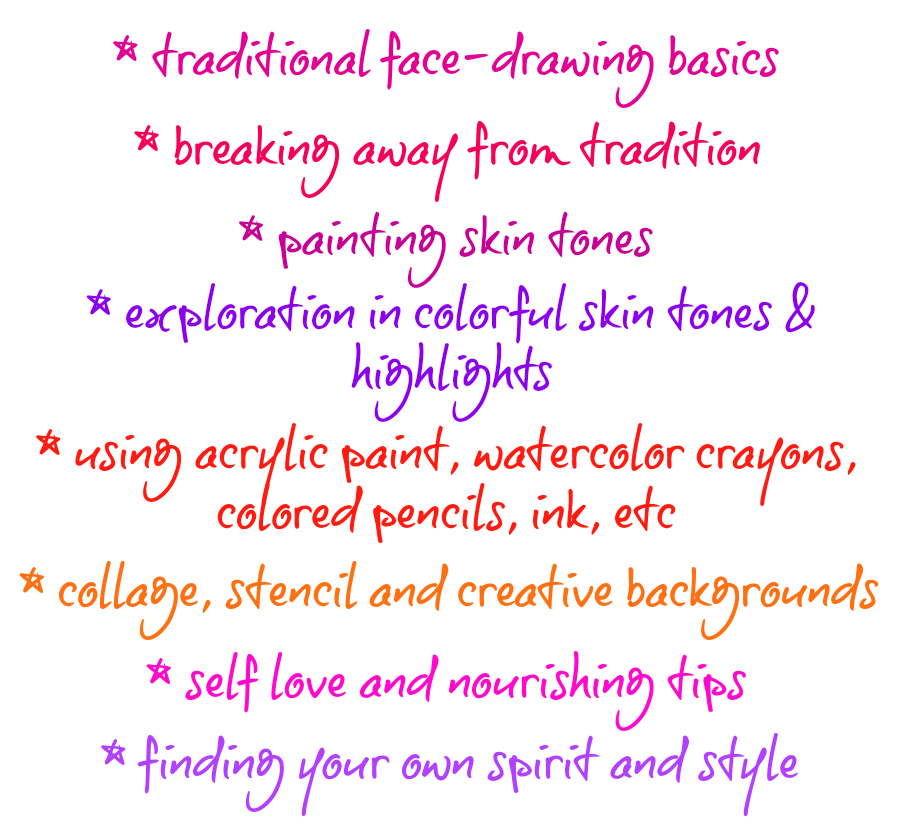 * traditional face-drawing basics
* breaking away from tradition
* painting skin tones
* exploration in colorful skin tones &
highlights
* using acrylic paint, watercolor crayons,
colored pencils, ink, etc
* collage, stencil and creative backgrounds
* self love and nourishing tips
* finding your own spirit and style